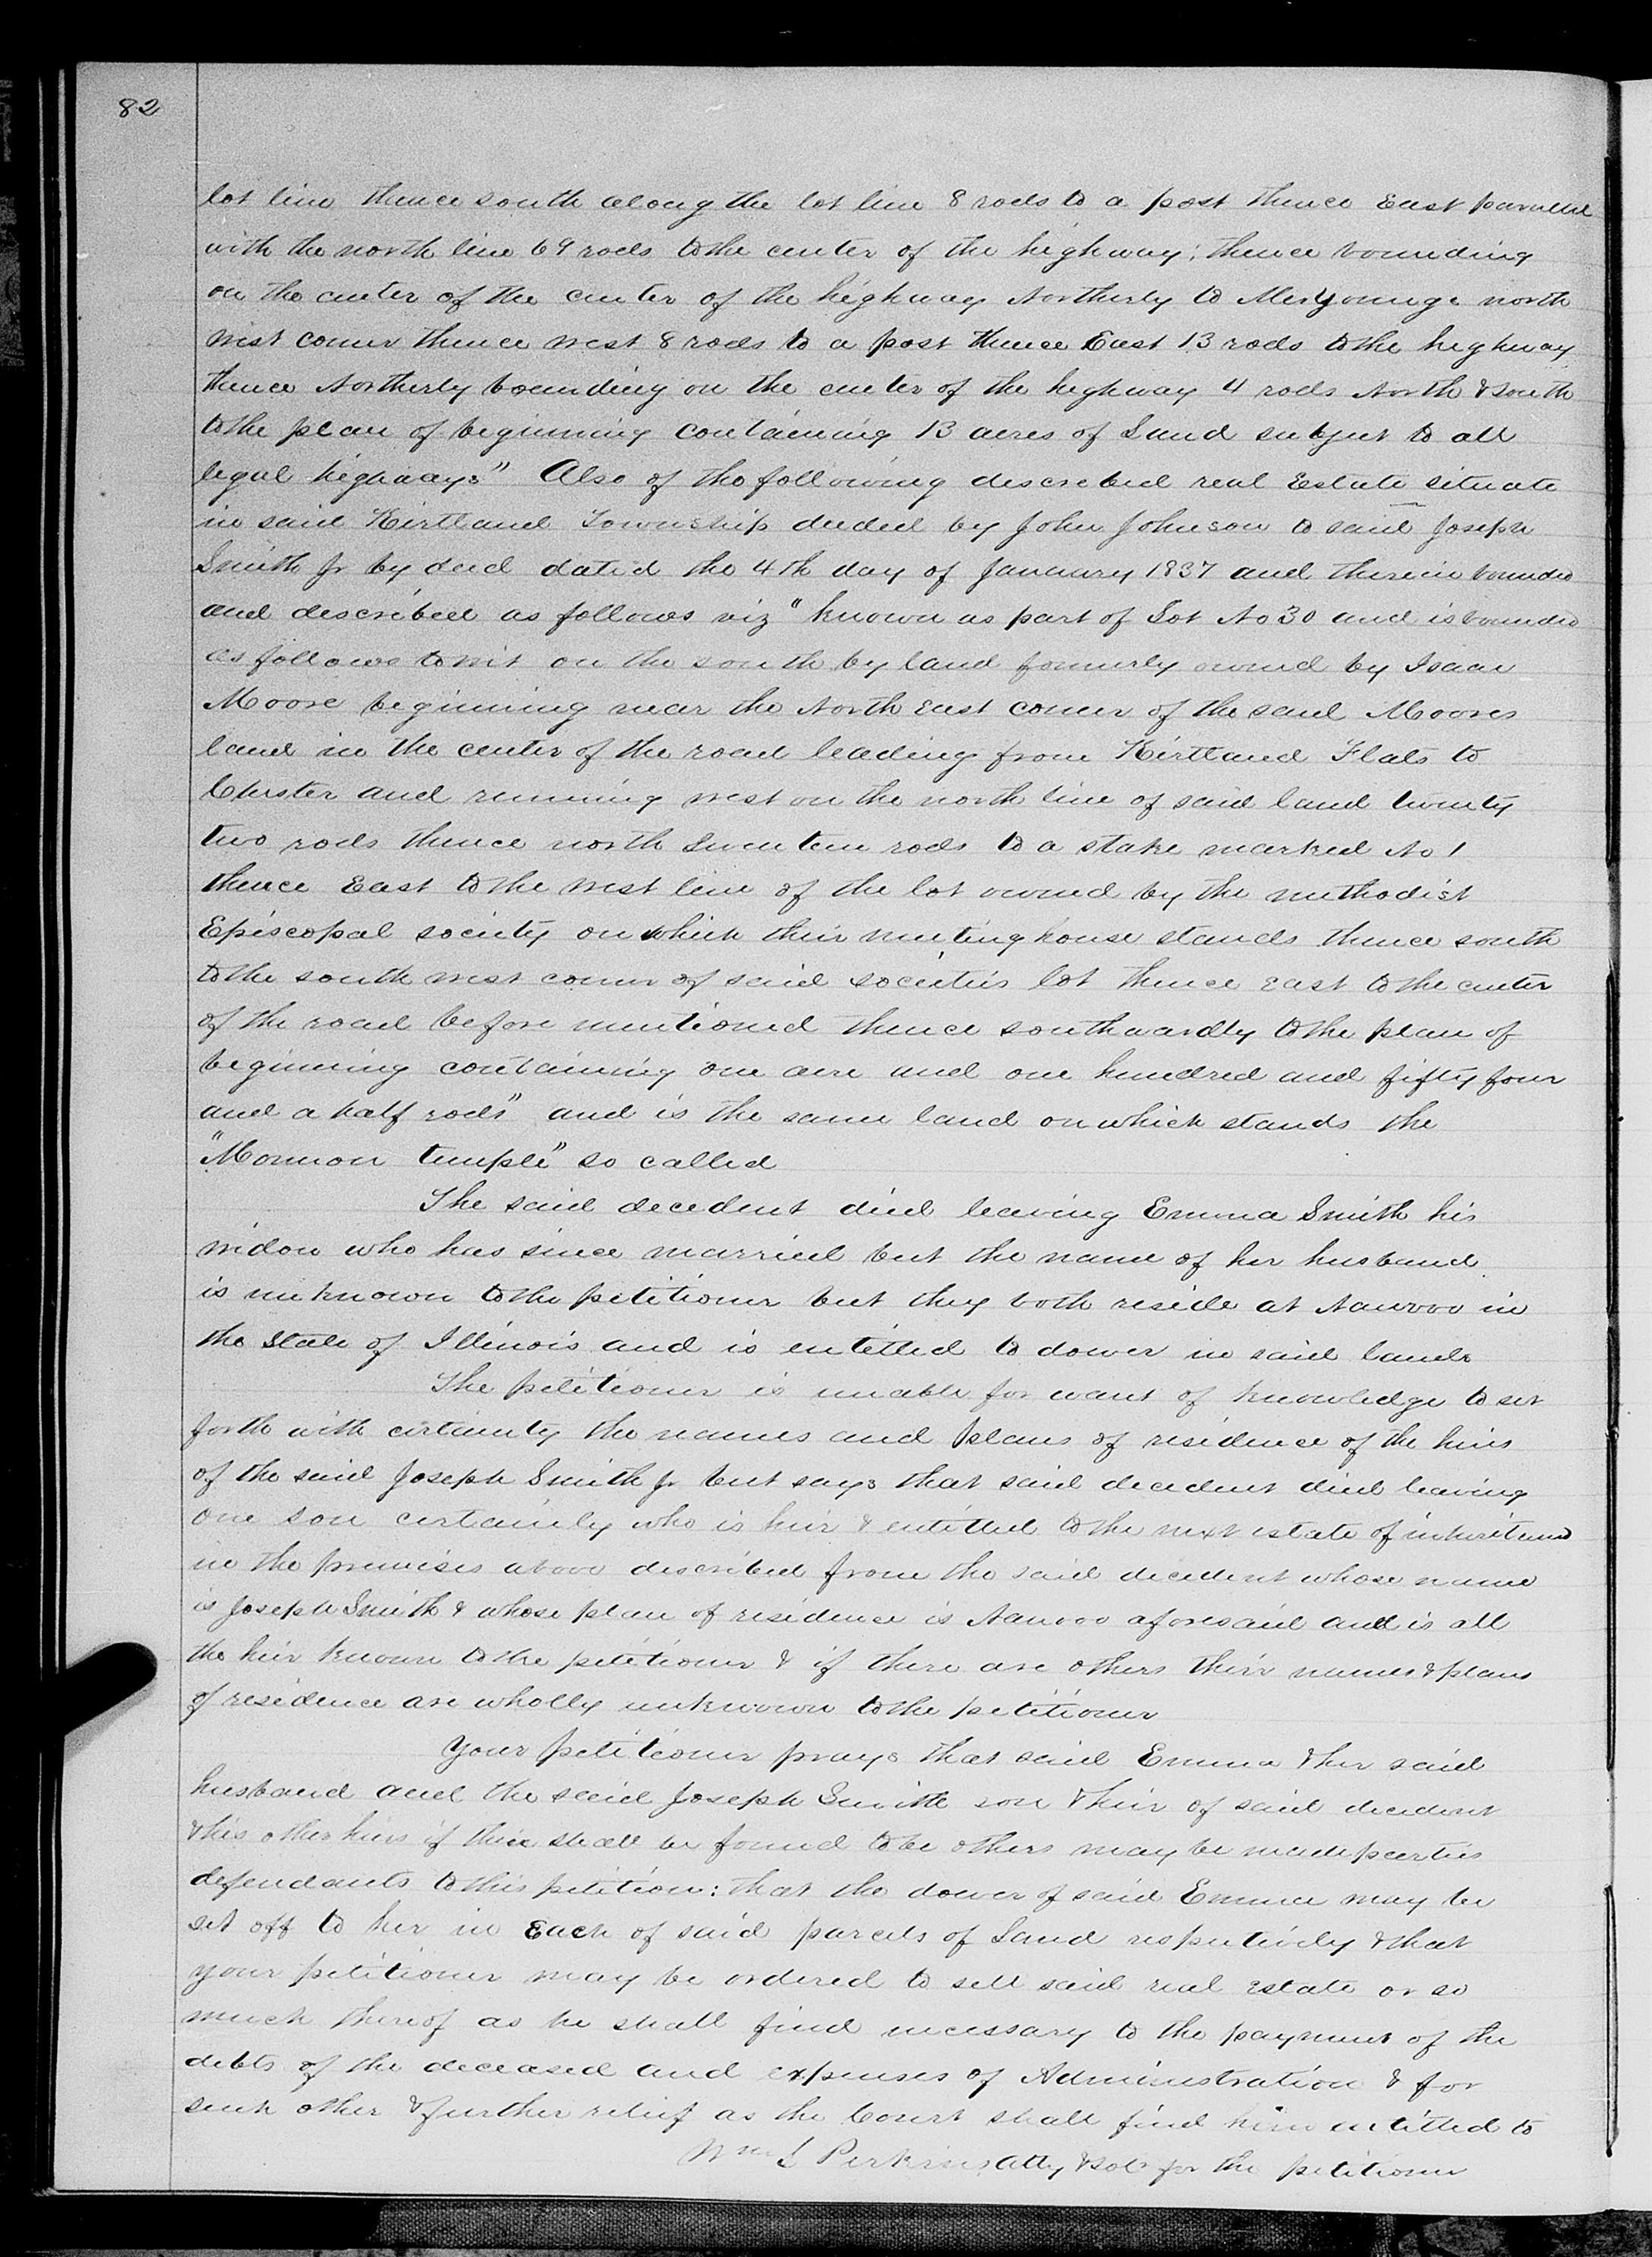 82
lot line thence south along the lot line 8 rods to a post thence East parallel
with the north line 69 rods to the center of the highway; thence bounding
on the center of the center of the highway Northerly to Youngs north
west corner thence west 8 rods to a post thence East 13 rods to the highway
thence Northerly bounding on the center of the highway 4 rods North & south
to the place of beginning containing 13 acres of Land subject to all
legal highways" Also of the following described real Estate situate
in said Kirtland Township deeded by John Johnson to said Joseph
Smith Jr by deed dated the 4th day of January 1837 and therein bounded
and described as follows viz "known as part of Lot No 30 and is bounded
as follows towit on the south by land formerly owned by Isaac
Moore beginning near the North East corner of the said Moores
land in the center of the road leading from Kirtland Flats to
Chester and running west on the north line of said land twenty
two rods thence north seventeen rods to a stake marked No 1
thence East to the west line of the lot owned by the methodist
Episcopal society on which their meeting house stands thence south
to the south west corner of said societies lot thence east to the center
of the road before mentioned thence southwardly to the place of
beginning containing one acre and one hundred and fifty four
and a half rods" and is the same land on which stands the
"Mormon temple" so called
The said decedent died leaving Emma Smith his
widow who has since married but the name of her husband
is unknown to the petitioner but they both reside at Nauvoo in
the State of Illinois and is entitled to dower in said lands
The petitioner is unable for want of knowledge to set
forth with certainty the names and places of residence of the heirs
of the said Joseph Smith Jr but says that said decedent died leaving
one son certainly who is heir & entitled to the next estate of inheritance
in the premises above described from the said decedent whose name
is Joseph Smith & whose place of residence is Nauvoo aforesaid and is all
the heir known to the petitioner & if there are others their names & places
of residence are wholly unknown to the petitioner
Your petitioner prays that said Emma & her said
husband and the said Joseph Smith son & heir of said decedent
& his other heirs if there shall be found to be others may be made parties
defendants to this petition: that the dower of said Emma may be
set off to her in Each of said parcels of Land respectively & that
your petitioner may be ordered to sell said real Estate or so
much thereof as he shall find necessary to the payment of the
debts of the deceased and expenses of Administration & for
such other & further relief as the Court shall find him entitled to
Wm L Perkins Atty & Sol for the petitioner